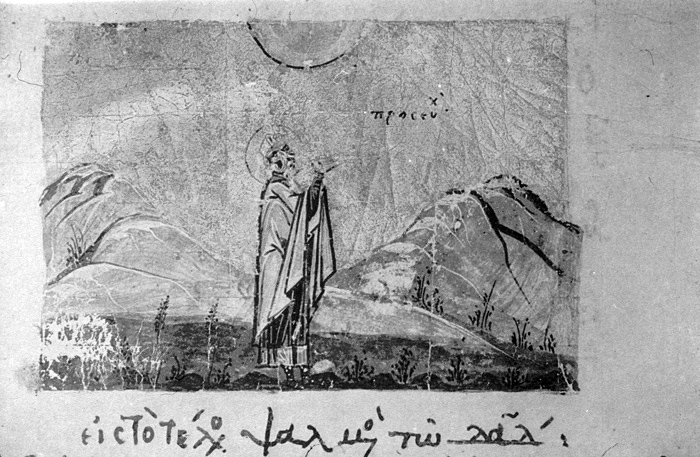 προσευχ
εἰς τὸ τέλο ψαλμὸ τῶ δαδ: